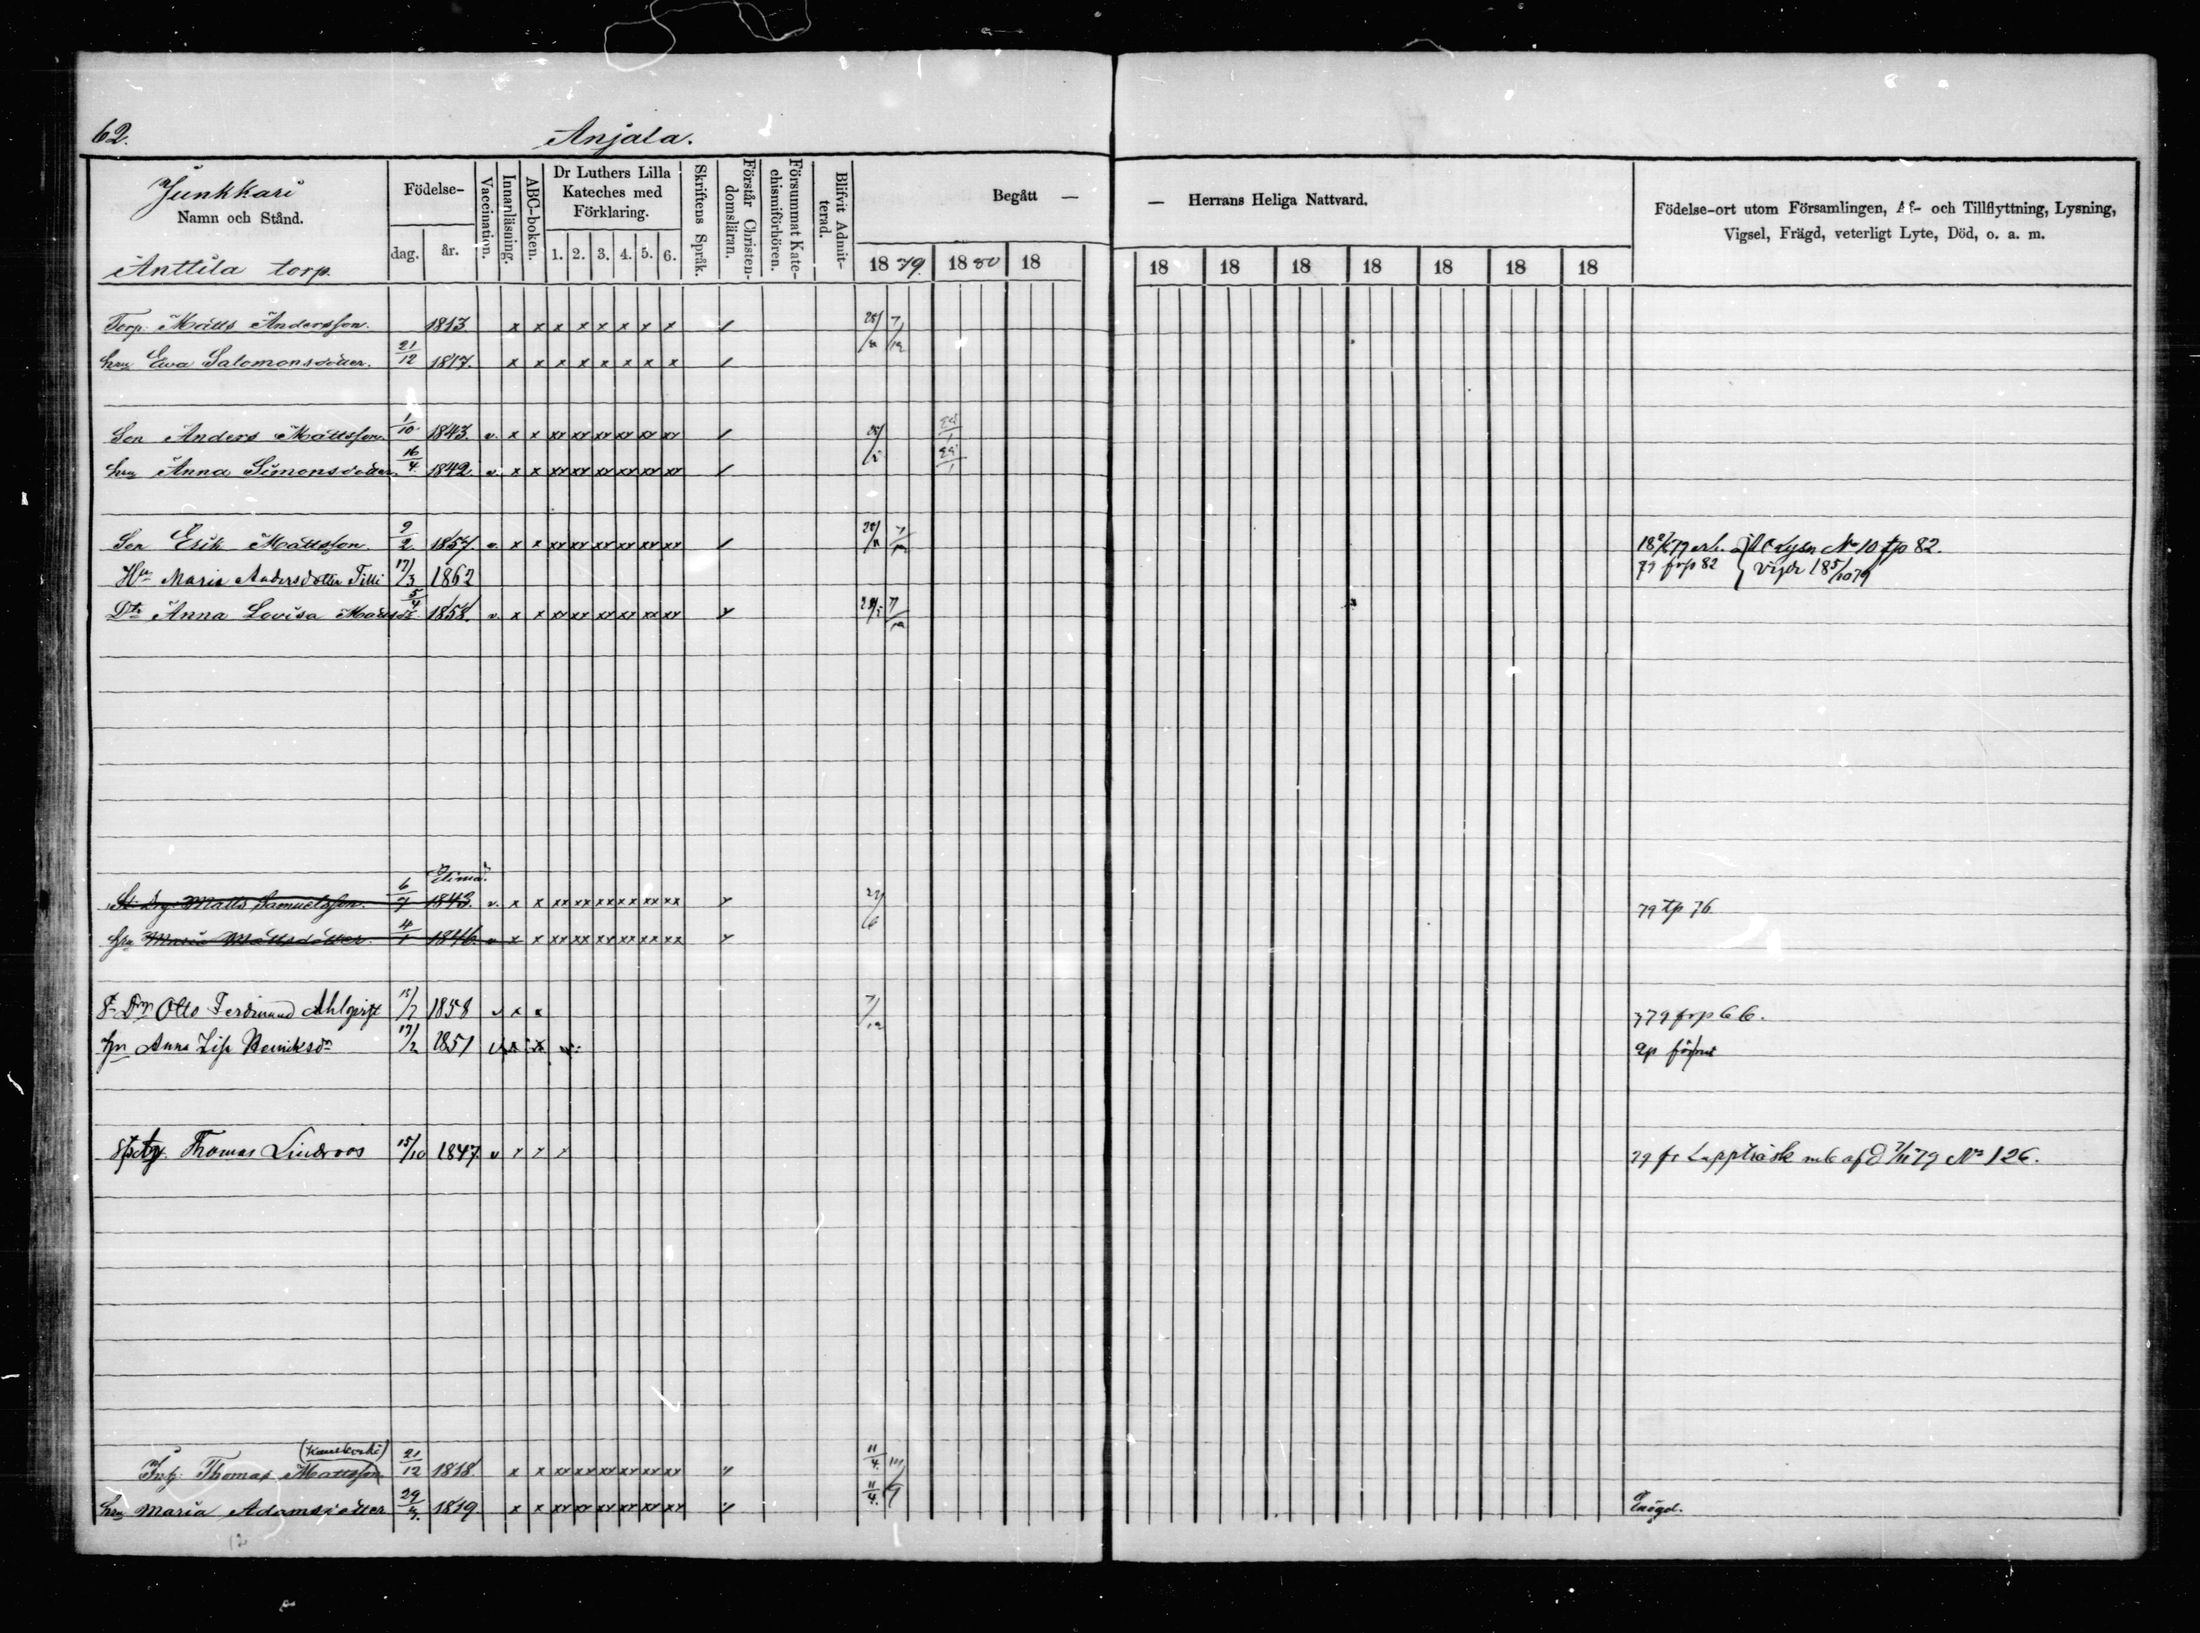 62.
Anjala.
Junkkari
Namn och Stånd.
Anttila torp.
Födelse-
dag. år.
Vaccination.
Innanläsning.
ABC-boken.
Dr Luthers Lilla
Kateches med
Förklaring.
1. 2. 3. 4. 5. 6.
Skriftens Språk.
Förstår Christen-
domsläran.
Försummat Kate-
chismiförhören.
Blifvit Admit-
terad.
Begått —
— Herrans Heliga Nattvard.
1879. 1880 18 18 18 18 18 18 18 18
Födelse-ort utom Församlingen, Af- och Tillflyttning, Lysning,
Vigsel, Frägd, veterligt Lyte, Död, o. a. m.
Torp. Matts Andersson. 1813. x x x x x x x x
hru Ewa Salomonsdotter. 21/12 1817. x x x x x x x x
Son Anders Mattsson. 1/10 1843. v. x x xx xx xx xx xx xx
hru Anna Simonsdotter. 16/4 1842. v. x x xx xx xx xx xx xx
Son Erik Mattsson. 9/2 1857. v. x x xx xx xx xx xx xx Lysn No 10 tp 82.
Hu Maria Andersdotter Tilli 17/3 1862 79 frp 82 Vigde 18 5/10 79
Dtr Anna Lovisa Mattsdr 5/4 1858. v. x x xx xx xx xx xx xx
Elimä.
Matts Samuelsson. 6/7 1843. v. x x xx xx xx xx xx xx 79 tp 76.
hru Maria Mattsdotter. 4/1 1846. v x x xx xx xx xx xx xx
Otto Ferdinand Ahlqvist 15/7 1858 v x x 7/12 79 frp 66.
hru Anna Lisa Henriksdr 17/2 1851 v x x
Thomas Lindroos 15/10 1847. v 79 fr Lappträsk mb af d 7/11 79 No 126.
Inh. Thomas Mattsson 21/12 1818 x x xx xx xx xx xx xx 11/4
hru Maria Adamsdotter 29/4 1819. x x xx xx xx xx xx xx 11/4. Enögd.